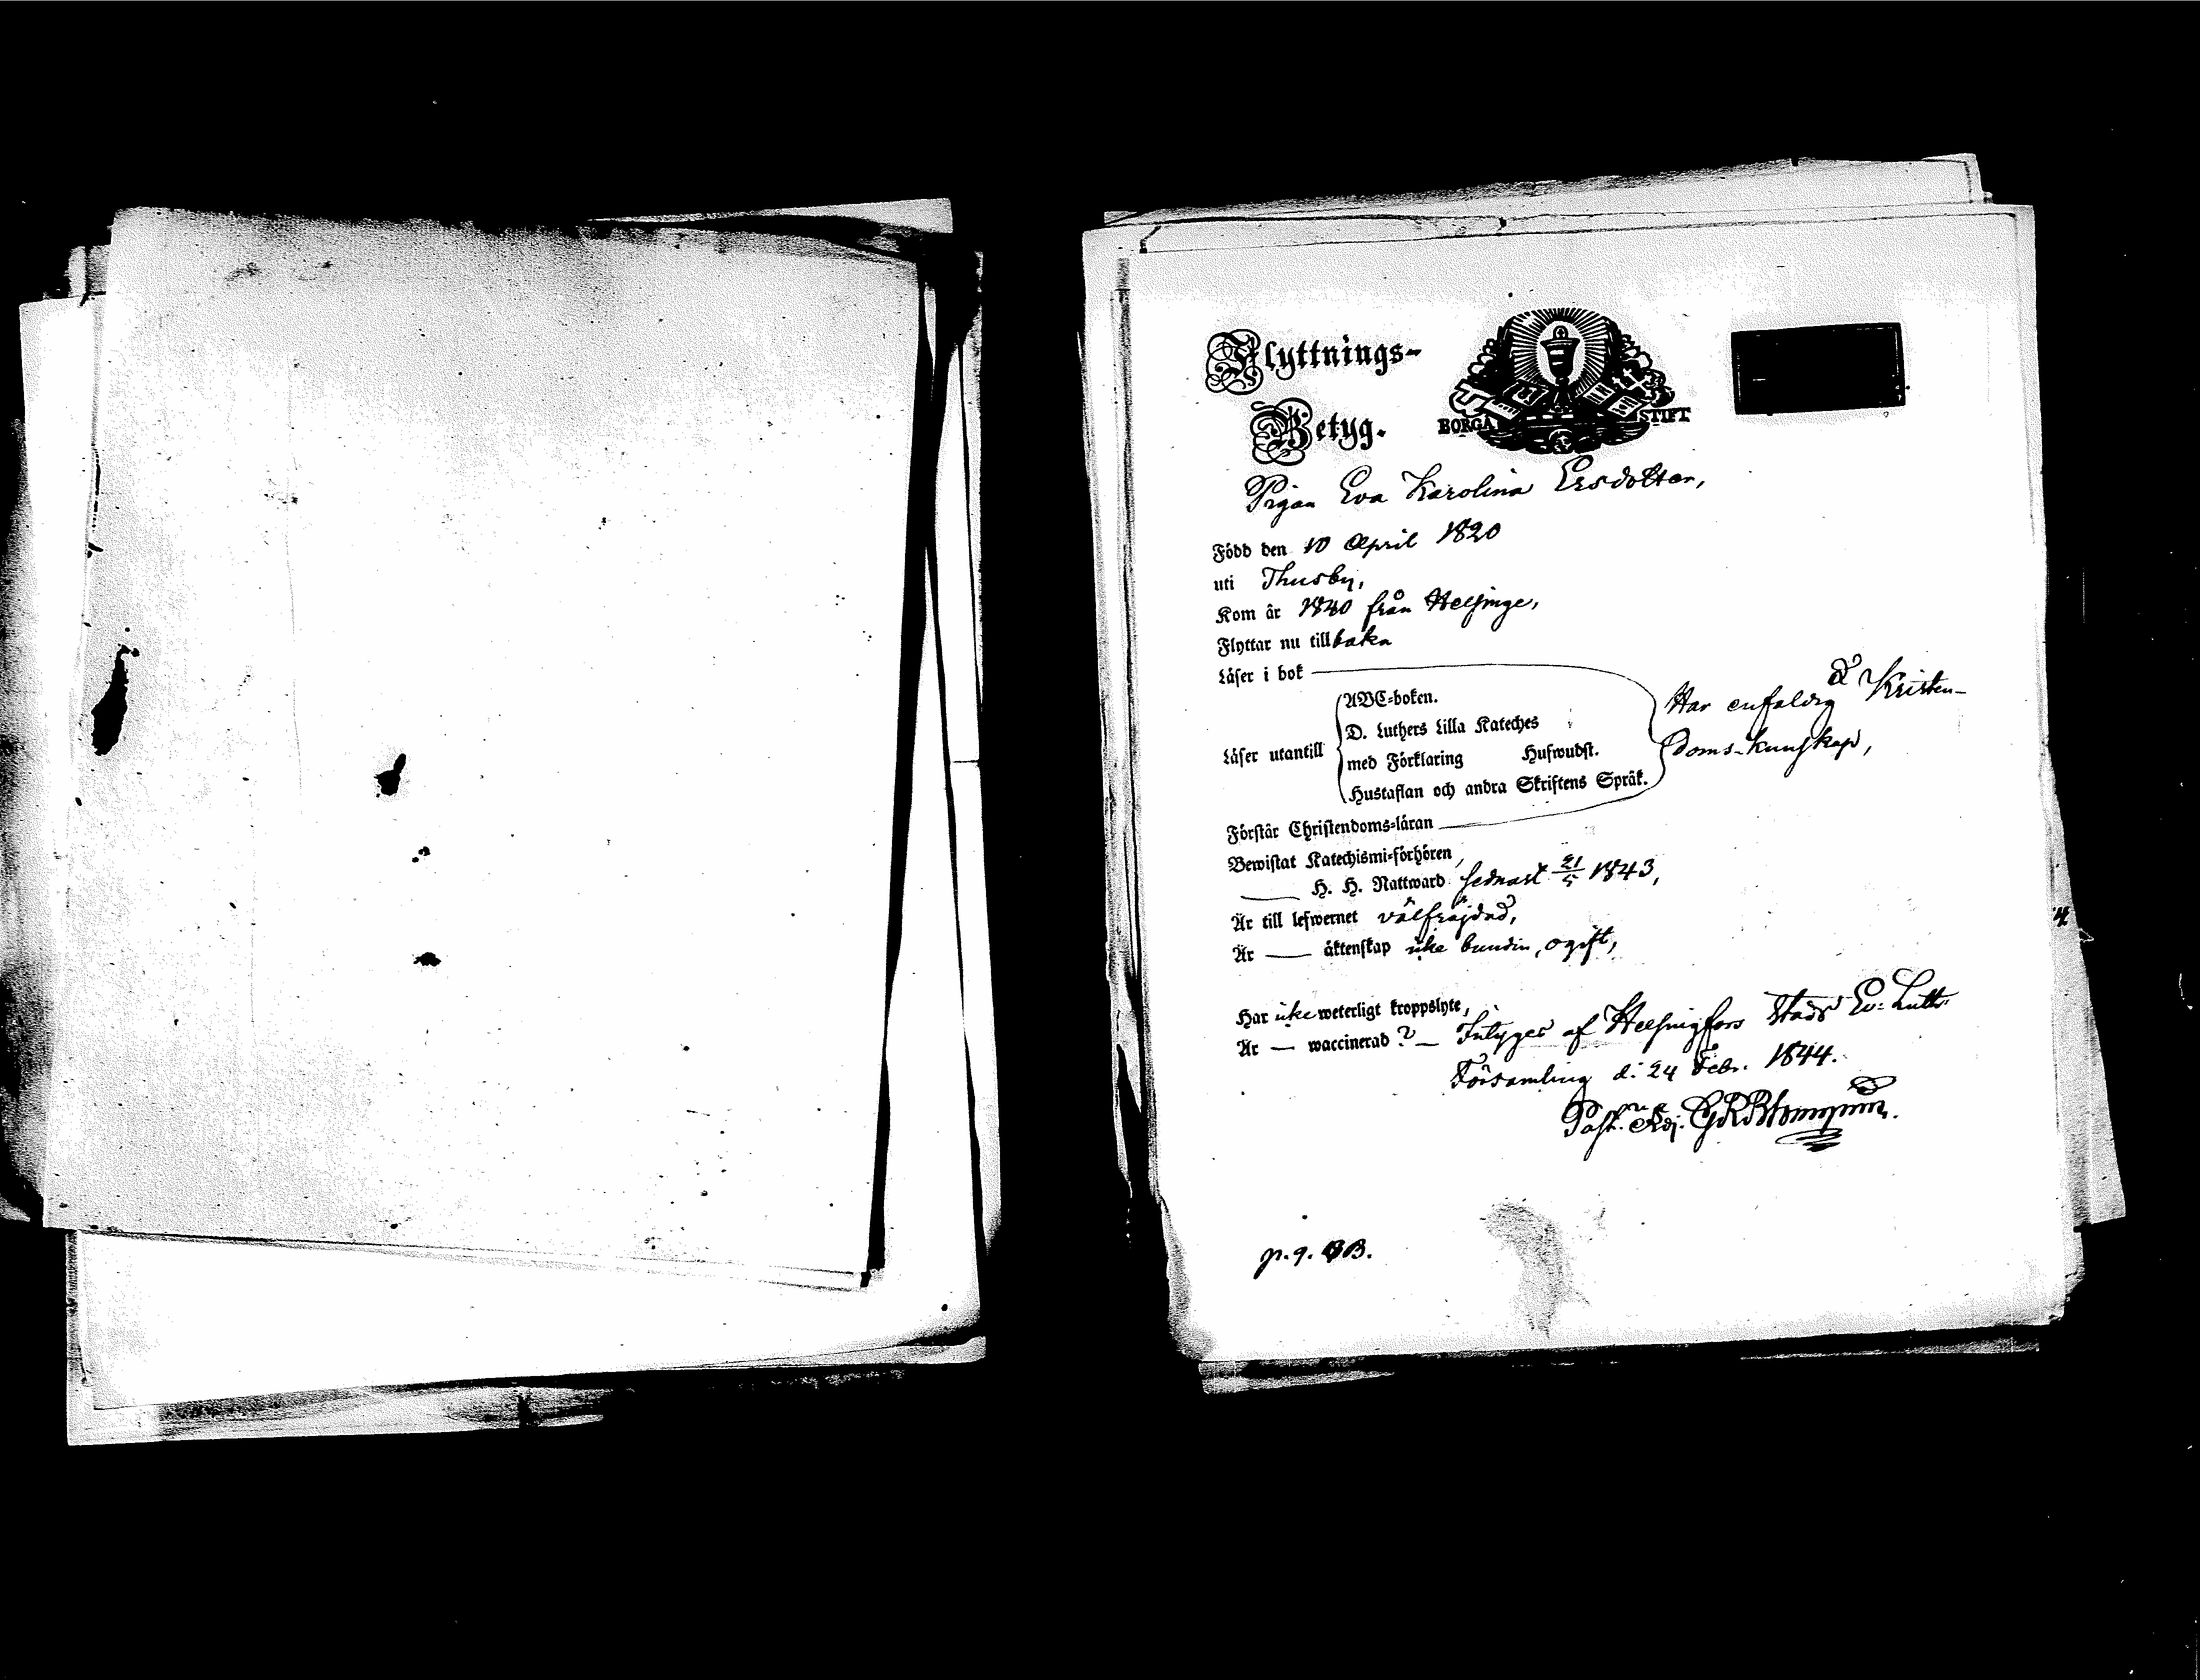 Flyttnings-
Betyg.
BORGÅ STIFT
Pigan Eva Karolina Ersdotter,
Född den 10 April 1820
uti Thusby,
Kom år 1840 från Helsinge,
Flyttar nu tillbaka
Läser i bok
Läser utantill
ABC-boken.
D. Luthers Lilla Kateches
med Förklaring Hufwudst.
Hustaflan och andra Skriftens Språk.
Har enfaldig Kristen-
doms-kunskap,
Förstår Christendoms-läran
Bewistat Katechismi-förhören,
H. H. Nattward sednast 21/5 1843,
Är till lefwernet välfräjdad,
Är — äktenskap icke bunden, ogift,
Har icke weterligt kroppslyte,
Är — waccinerad? — Intygas af Helsingfors Stads Ev: Luth:
Församling d: 24 Febr. 1844.
Past. Adj.
p. 9. BB.